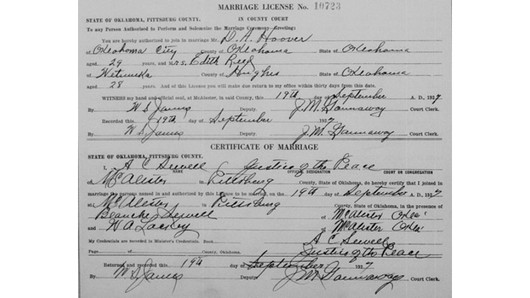 MARRIAGE LICENSE No. 10723
STATE OF OKLAHOMA, PITTSBURG COUNTY. IN COUNTY COURT
To any Person Authorized to Perform and Solemnize the Marriage Ceremony—Greeting:
You are hereby authorized to join in marriage Mr. D. A. Hoover
of Oklahoma City County of Oklahoma State of Oklahoma
aged 29 years and Mrs. Edith Reed
of Wetumka County of Hughes State of Oklahoma
aged 28 years. And of this License you will make due return to my office within thirty days from this date.
WITNESS my hand and official seal, at McAlester, in said County, this 19th day of September A. D., 1927
By W. S. James Deputy. J. M. Court Clerk.
Recorded this 19th day of September 1927
By W. S. James Deputy. J. M. Court Clerk.
CERTIFICATE OF MARRIAGE
STATE OF OKLAHOMA, PITTSBURG COUNTY.
I, A C Sewell Justice of the Peace
NAME OFFICIAL DESIGNATION COURT OR CONGREGATION
of McAlester Pittsburg County, State of Oklahoma, do hereby certify that I joined in
marriage the persons named in and authorized by this License to be married, on the 19th day of September A. D. 1927
at McAlester in Pittsburg County, State of Oklahoma, in the presence of
Blanche Sewell of McAlester Okla
and H A of McAlester Okla
My Credentials are recorded in Minister's Credential Record, A C Sewell
Page County, Oklahoma. Justice of the Peace
Returned and recorded this 19th day of September 1927
By W. S. James Deputy. J. M. Court Clerk.